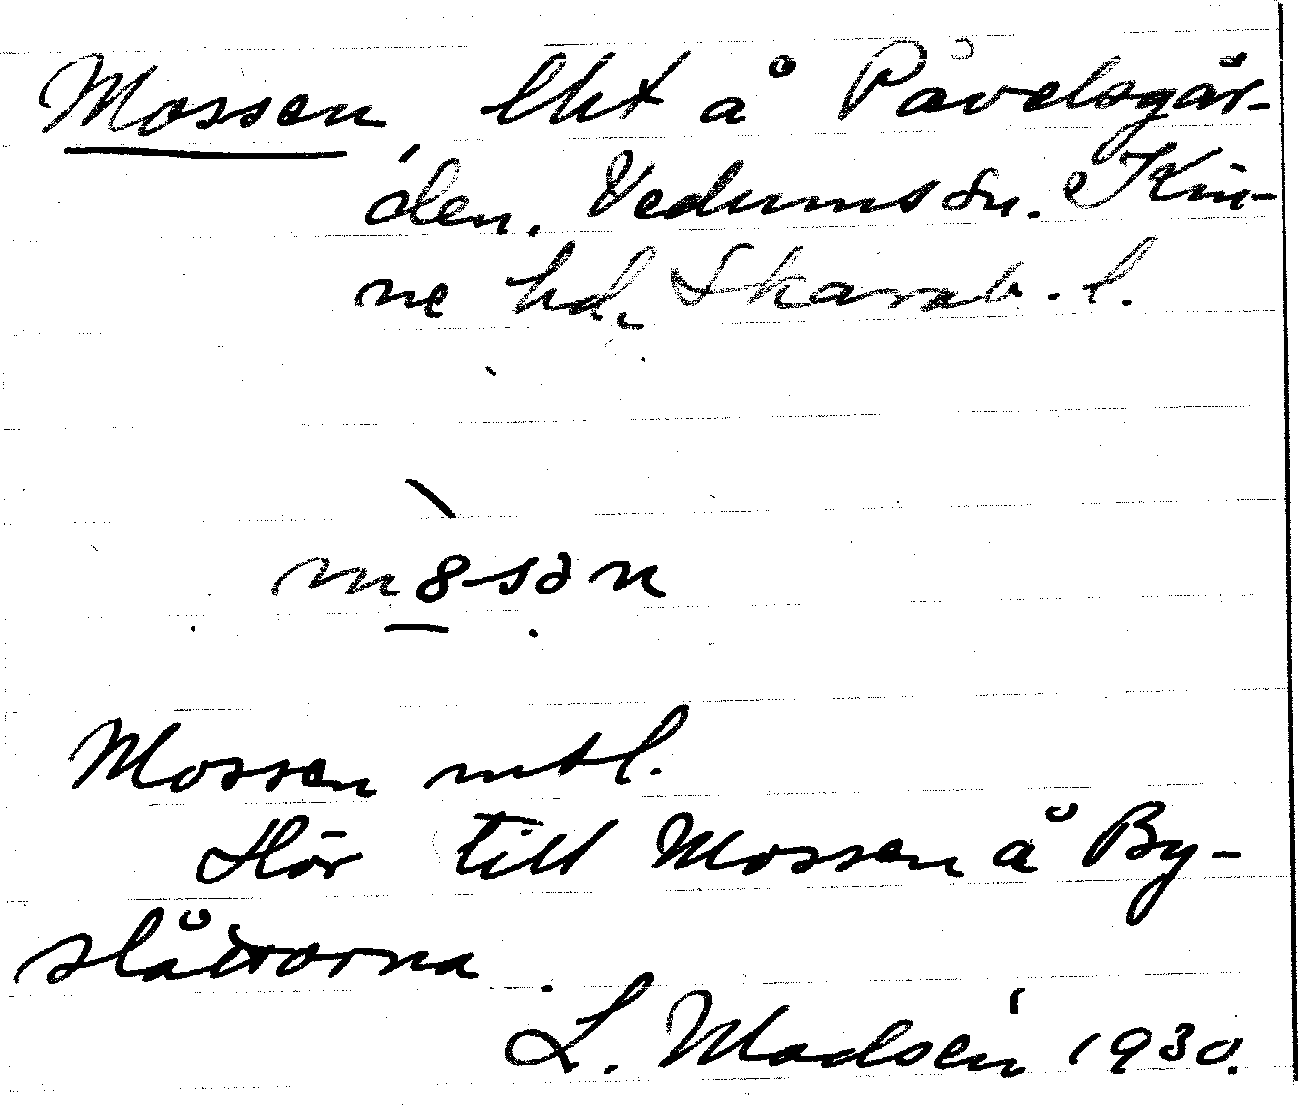 Mossen lht å Påvelsgår-
den. Vedums sn. Kin-
ne hd. Skarab. l.
m8-sən
Mossen mtl.
Hör till Mossen å By-
slåttorna.
L. Madsén 1930.